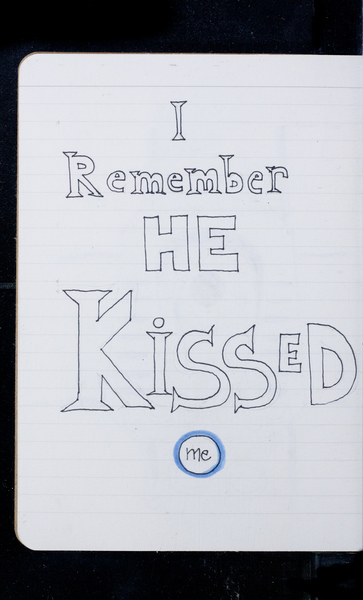 I
Remember
HE
KiSSED
me